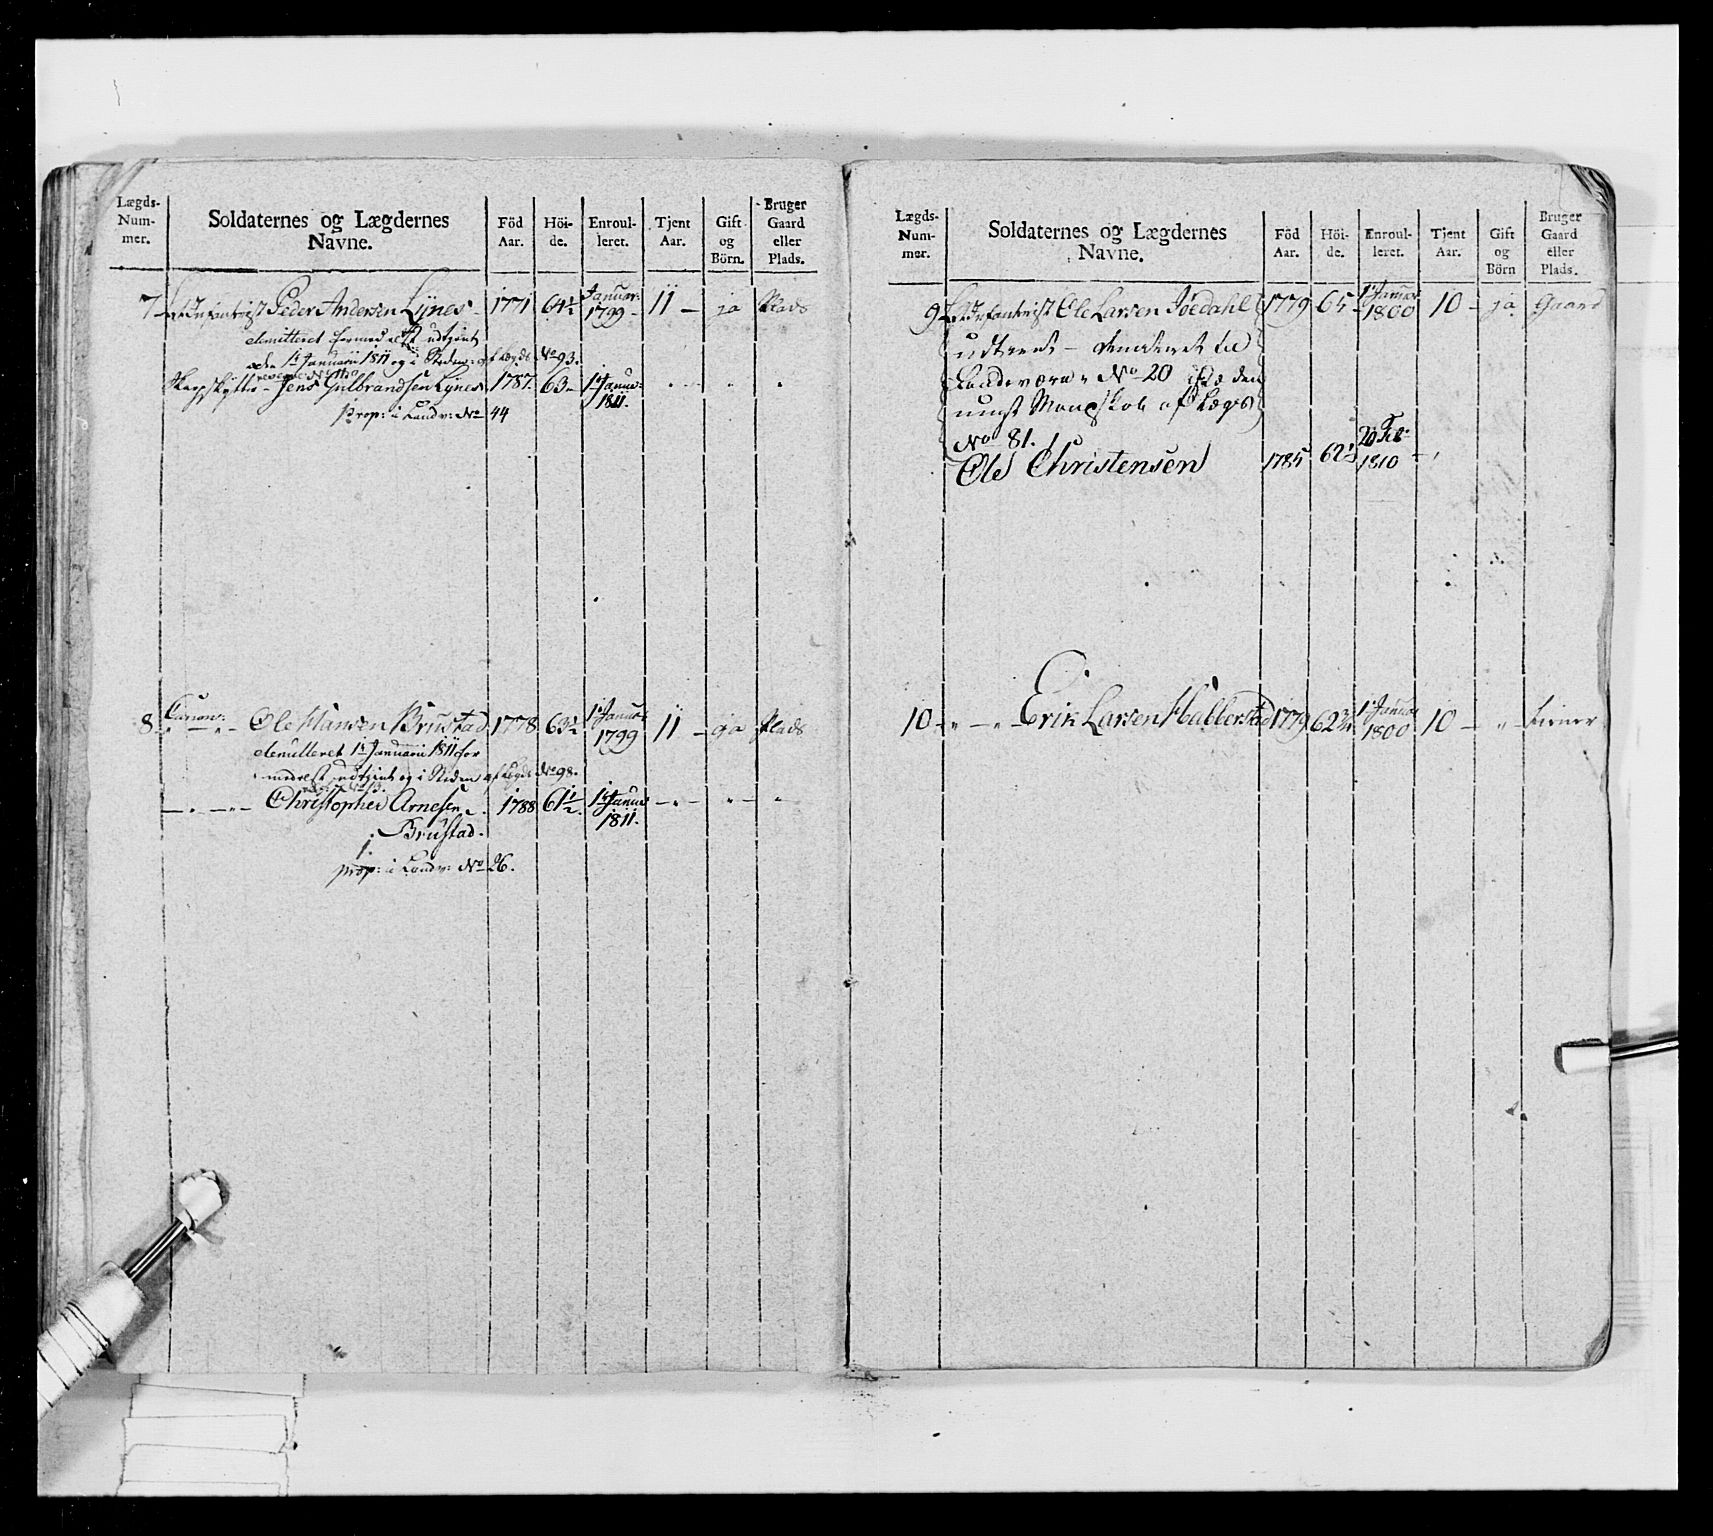 Lægds-
Num-
mer.
Soldaternes og Lægdernes
Navne.
Föd
Aar.
Höi-
de.
Enroul-
leret.
Tjent
Aar.
Gift
og
Börn.
Bruger
Gaard
eller
Plads.
7 Peder Andersen Lÿnes 1771 64½ Januar: 1799 11 ja Plads
demitteret formedelst udtjent
den 1te Januarii 1811 og i Steden af Lægds No 93.
Skarpskytte Jens Gulbrandsen Lÿnes 1787. 63 1te Janu: 1811.
prop: i Landv: No 44
8 Canon: Ole Hansen Brustad 1778 63½ 1te Januar 1799 11 ja Plads
demitteret 1te Januarii 1811 for
medelst udtjent og i Steden af Lægds No 98.
Christopher Arnesen 1788 61½ 1te Januar 1811.
Brustad.
prop: i Landv: No 26.
Lægds-
Num-
mer.
Soldaternes og Lægdernes
Navne.
Föd
Aar.
Höi-
de.
Enroul-
leret.
Tjent
Aar.
Gift
og
Börn
Bruger
Gaard
eller
Plads.
9 Ole Larsen 1779 65 1te Januar 1800 10 ja Gaard
udtient til
Landeværn No 20 den
Mandskab af Lægd
No 81.
Ole Christensen 1785 62½ 20 Feb: 1810
10 Erik Larsen Habberstad 1779 62¾ 1te Januar 1800 10 tiener